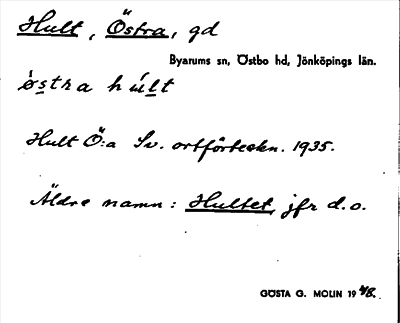 Hult, Östra, gd
Byarums sn, Östbo hd, Jönköpings län.
östra hult
Hult Ö:a Sv. ortförteckn. 1935.
Äldre namn: Hultet, jfr d.o.
GÖSTA G. MOLIN 1948.